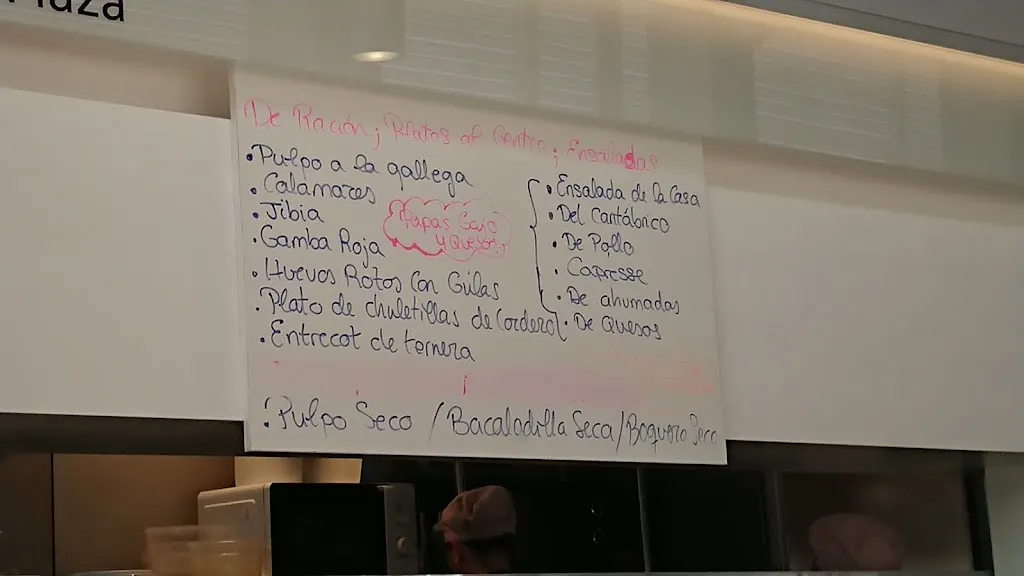 De Ración, Platos al Centro, Ensaladas
• Pulpo a la gallega
• Calamares
• Jibia
• Gamba Roja
• Huevos Rotos Con Gulas
• Plato de chuletillas de Cordero
• Entrecot de ternera
Tapas
y Quesos
• Ensalada de la Casa
• Del Cantábrico
• De Pollo
• Capresse
• De ahumadas
• De Quesos
Pulpo Seco / Bacaladilla Seca / Boquerо́n Seco